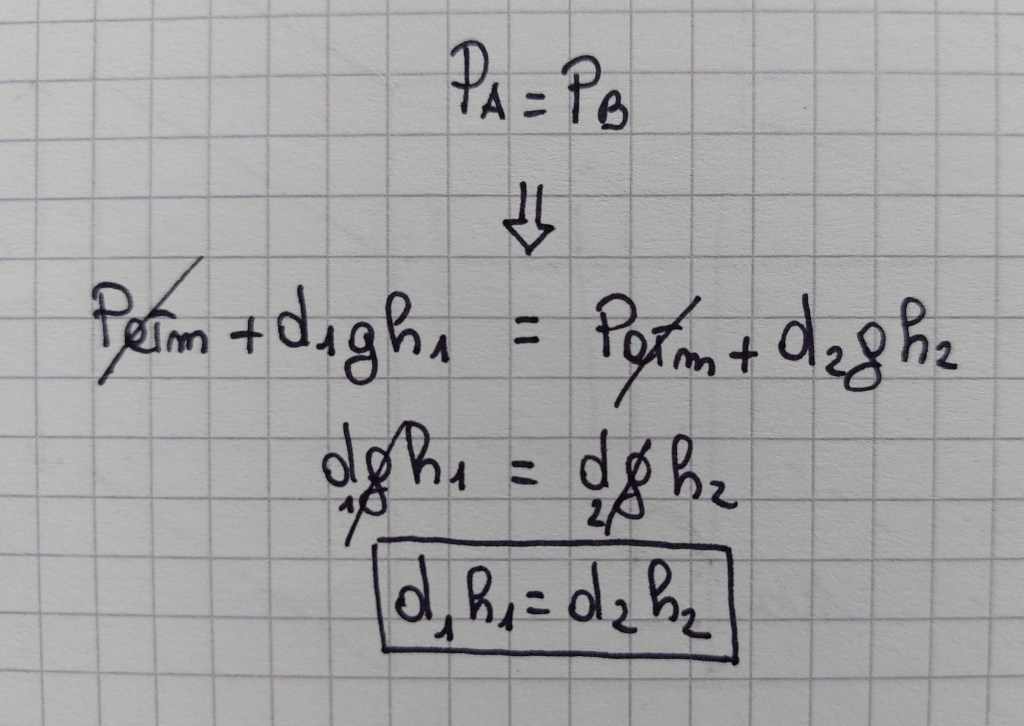 P_A = P_B
⇓
P_atm + d_1 g h_1 = P_atm + d_2 g h_2
d_1 g h_1 = d_2 g h_2
d_1 h_1 = d_2 h_2